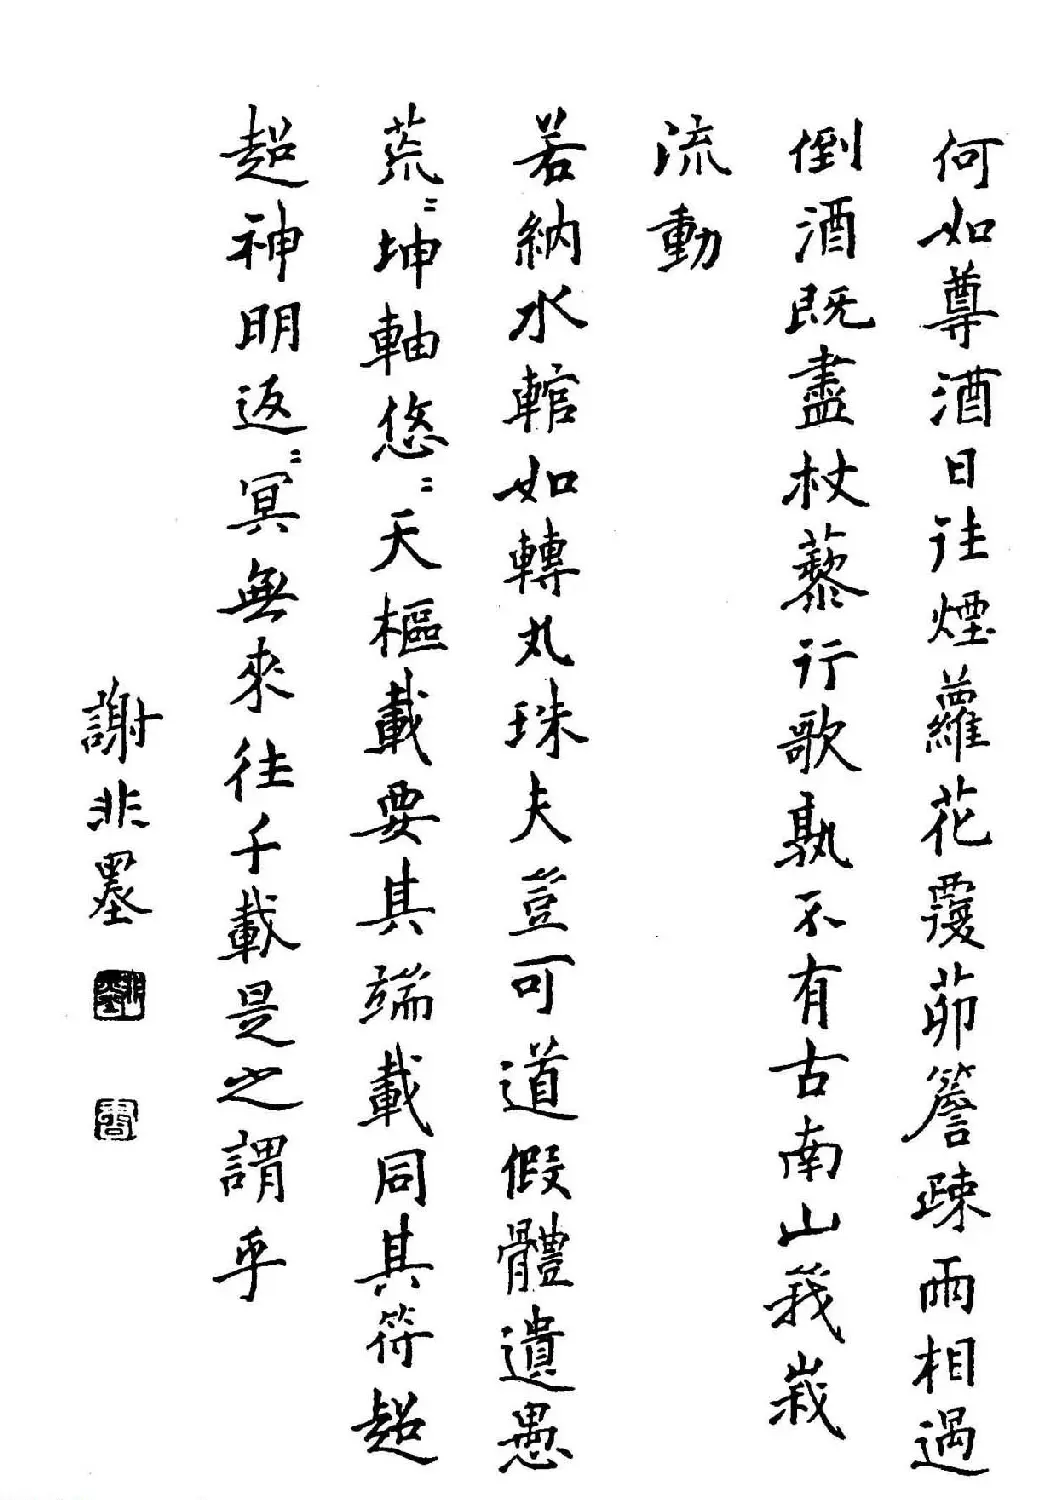 何如尊酒日往煙蘿花覆茆簷疎雨相過
倒酒既盡杖藜行歌孰不有古南山峩峩
流動
若納水輨如轉丸珠夫豈可道假體遺愚
荒〻坤軸悠〻天樞載要其端載同其符超
超神明返〻冥無來往千載是之謂乎
謝非墨